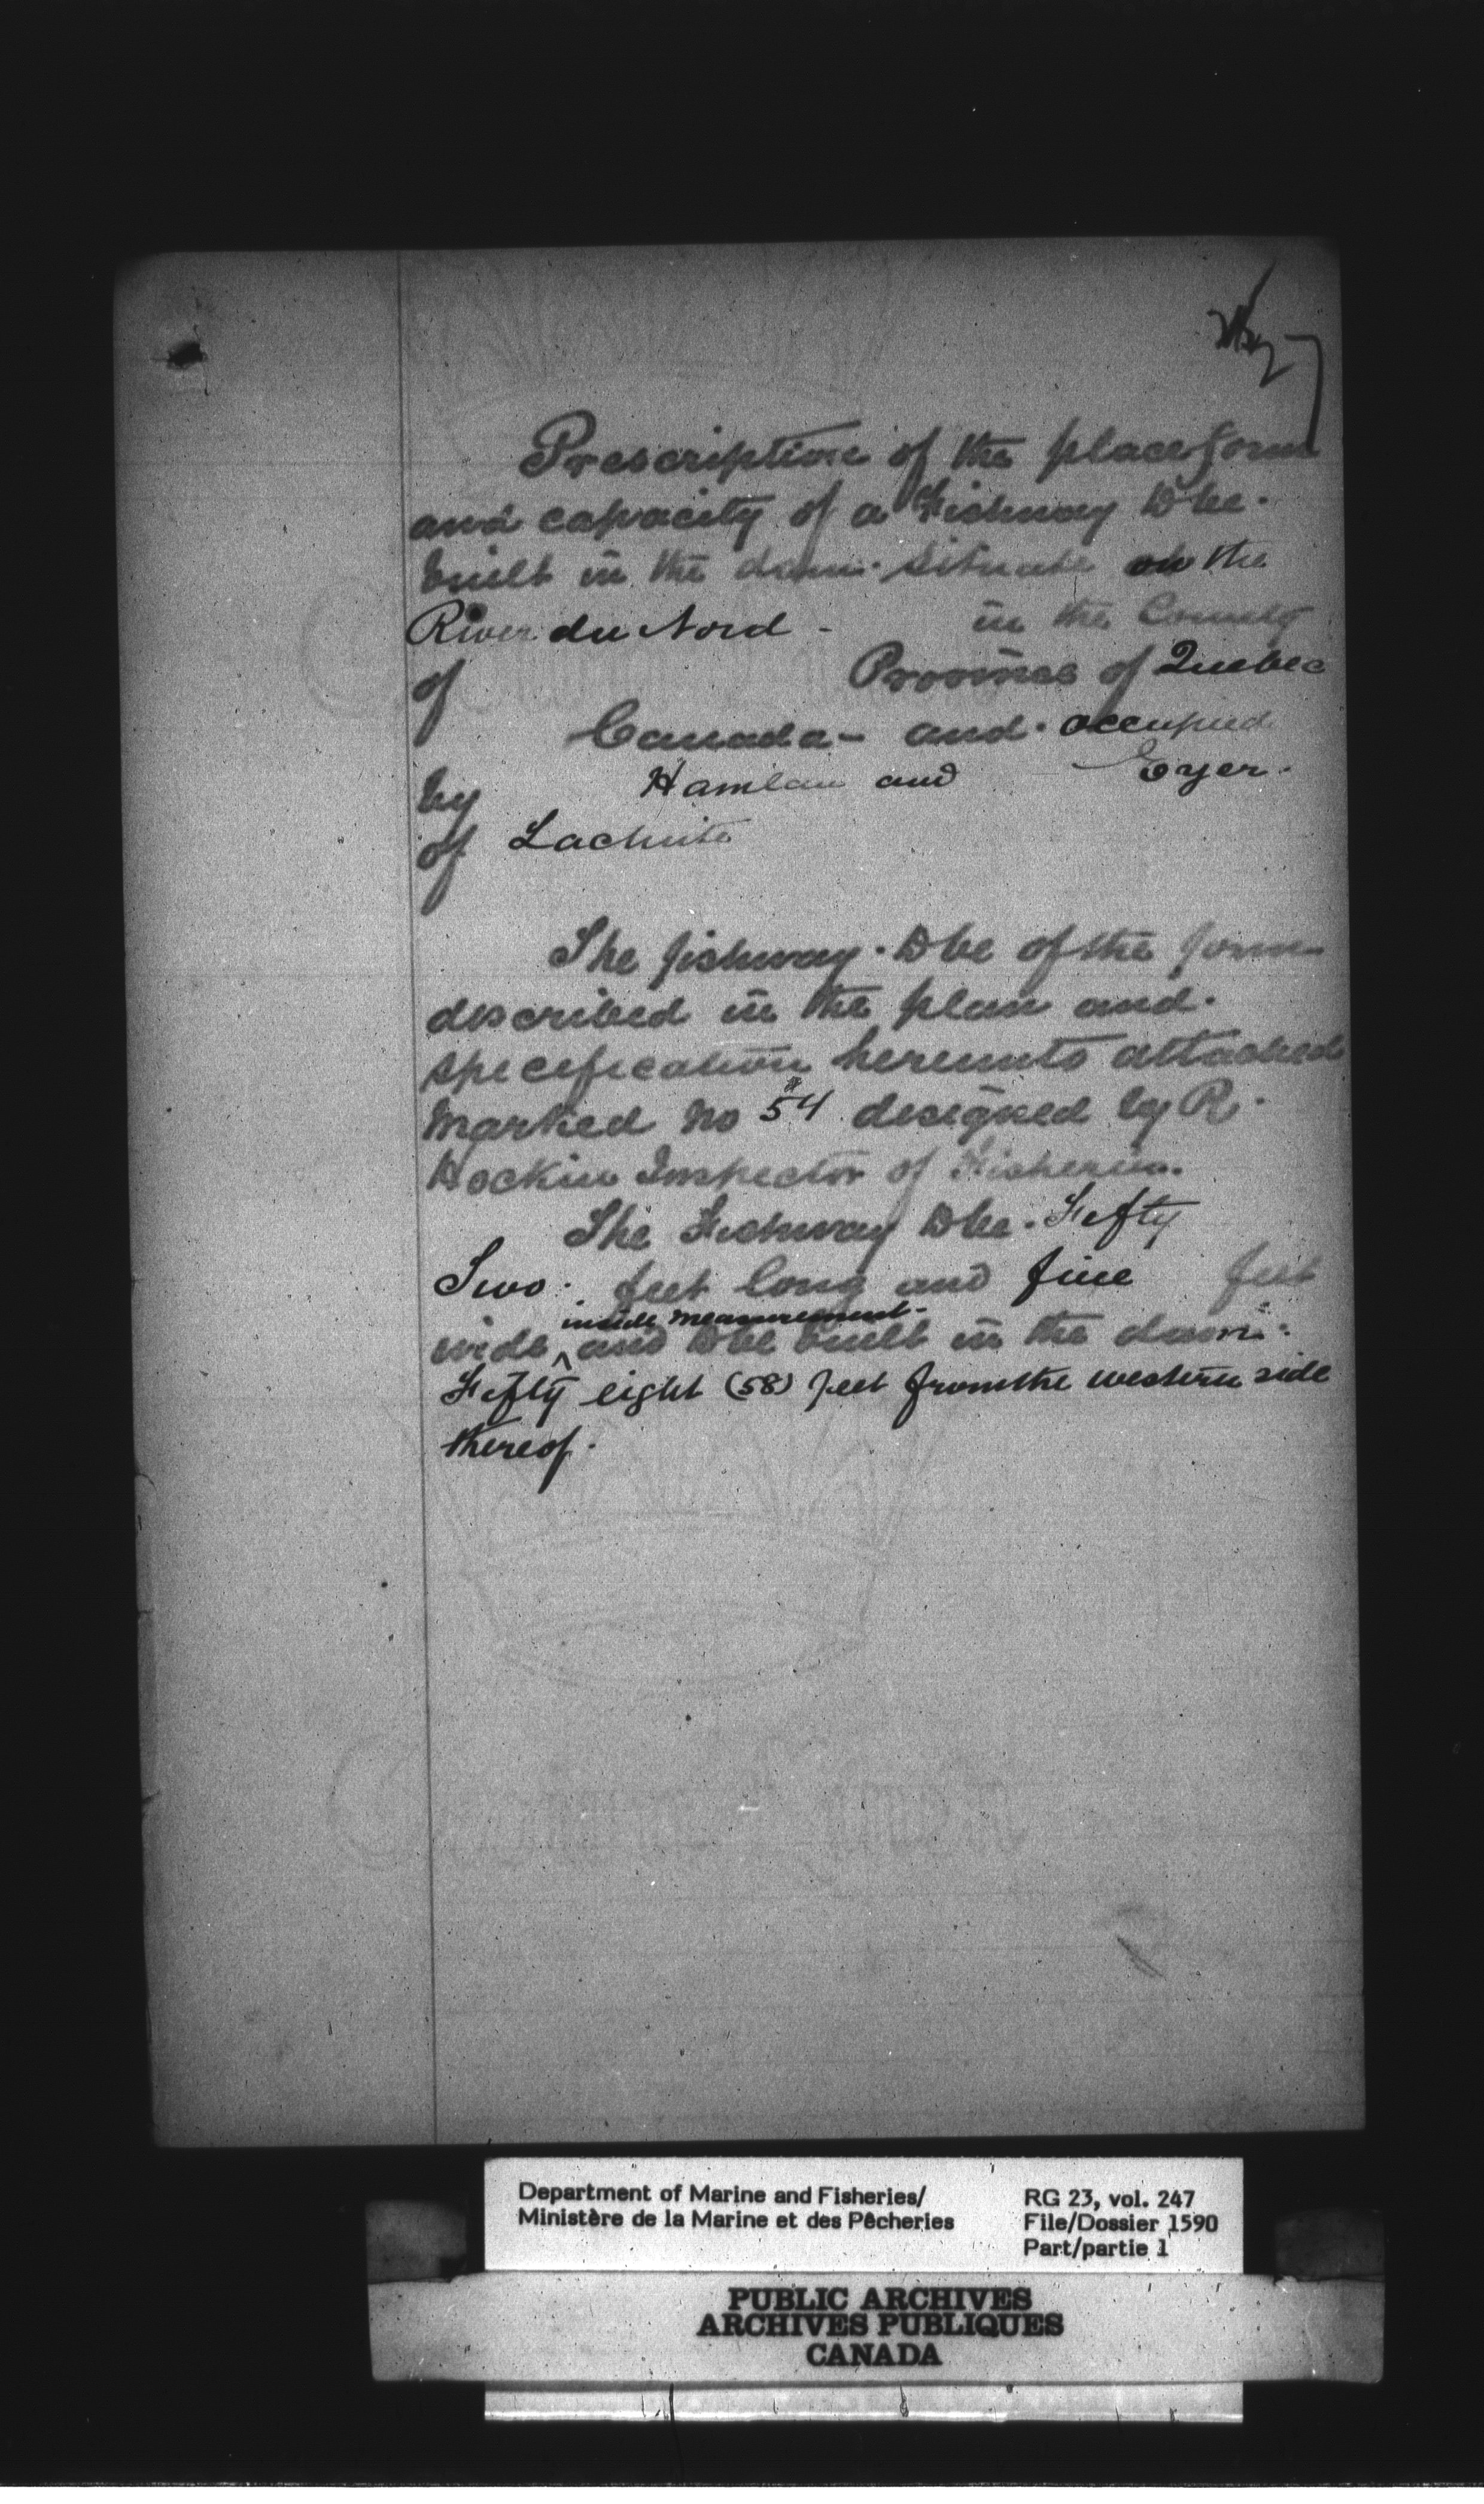 Prescription of the place form
and capacity of a Fishway to be
built in the dam situate on the
River du Nord - in the County
of Province of Quebec
Canada - and occupied
by Hamlan and Eyer.
of Lachute
The fishway to be of the form
described in the plan and
specification hereunto attached
marked no 54 designed by R.
Hockin Inspector of Fisheries.
The Fishway to be Fifty
Two feet long and five feet
inside measurement
wide ^ and to be built in the dam
Fifty eight (58) feet from the western side
thereof.
Department of Marine and Fisheries/
Ministère de la Marine et des Pêcheries
RG 23, vol. 247
File/Dossier 1590
Part/partie 1
PUBLIC ARCHIVES
ARCHIVES PUBLIQUES
CANADA